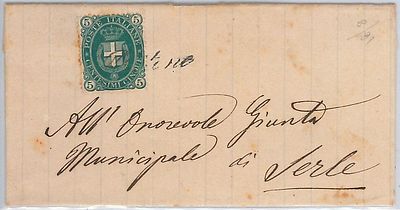 5 5
POSTE ITALIANE
CENTESIMI CINQUE
5 5
All' Onorevole Giunta
Municipale di Serle